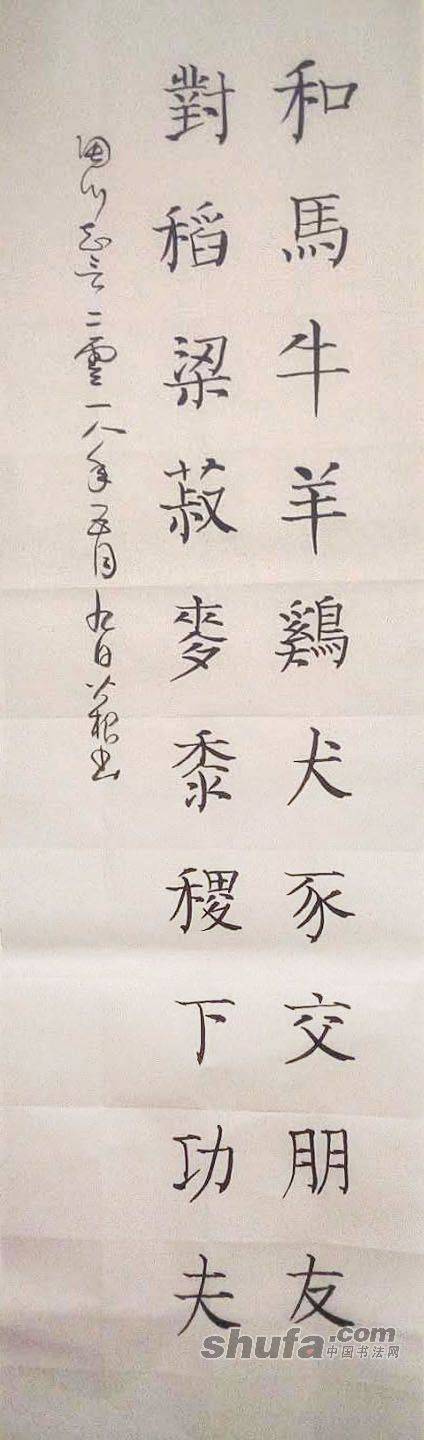 和馬牛羊鷄犬豕交朋友
對稻粱菽麥黍稷下功夫
二零一八年五月九日
書
shufa.com
中国书法网